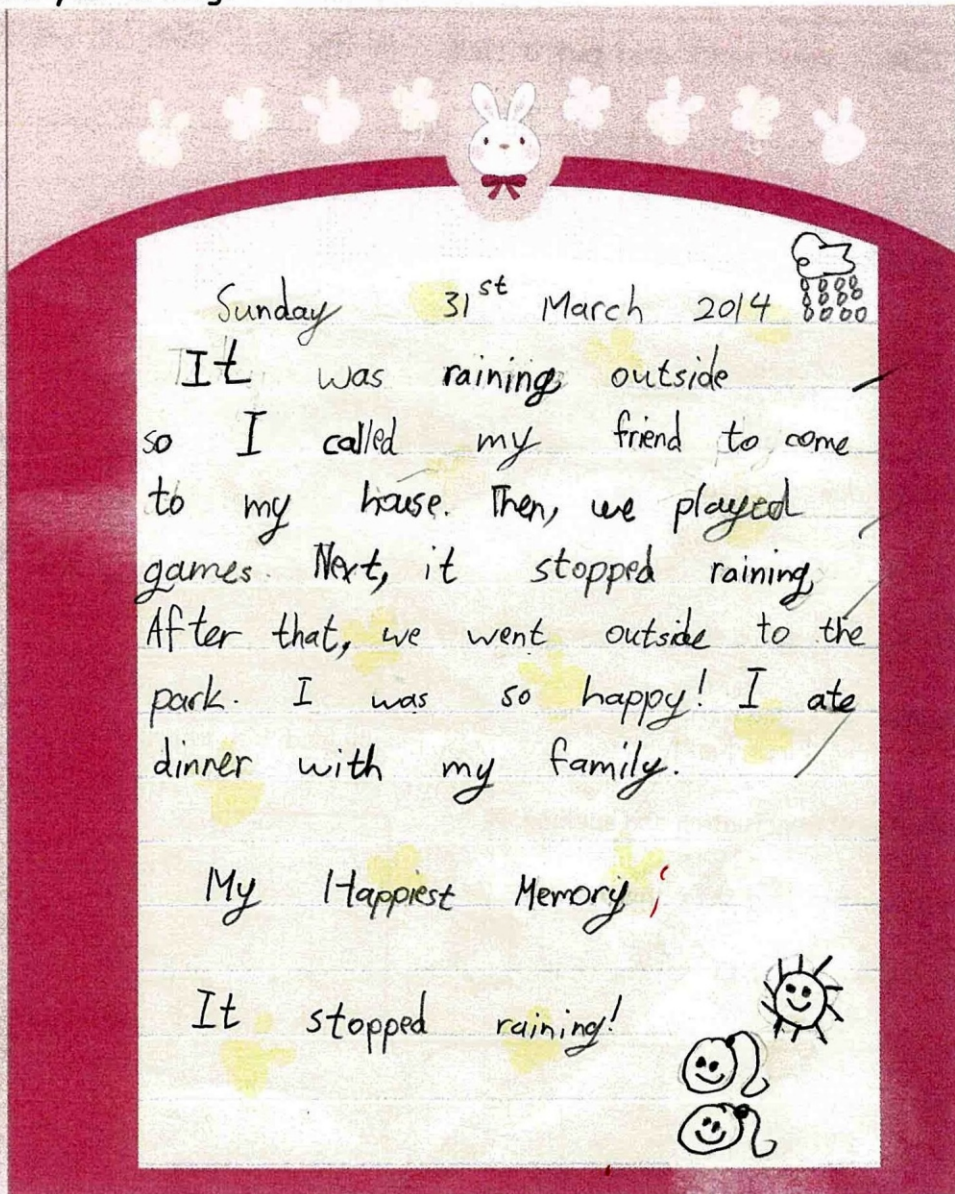 Sunday 31st March 2014
It was raining outside
so I called my friend to come
to my house. Then, we played
games. Next, it stopped raining,
After that, we went outside to the
park. I was so happy! I ate
dinner with my family.
My Happiest Memory;
It stopped raining!